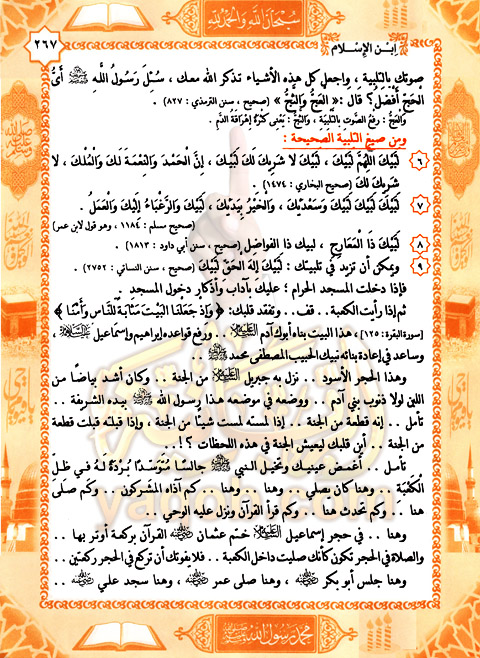 سبحان الله والحمد لله
٢٦٧
ابن الإسلام
صوتك بالتلبية ، واجعل كل هذه الأشياء تذكر الله معك ، سُئِلَ رَسُولُ اللَّهِ ﷺ أَيُّ
الْحَجِّ أَفْضَلُ ؟ قَالَ : « الْعَجُّ وَالثَّجُّ » (صحيح ، سنن الترمذي : ٨٢٧) .
وَالْعَجُّ : رفعُ الصَّوت بِالتَّلبِيَة ، وَالثَّجُّ : يَعْنى كَثرَة إهْرَاقَة الدَّم .
ومن صيغ التلبية الصحيحة :
٦ لَبَّيْكَ اللَّهُمَّ لَبَّيْكَ ، لَبَّيْكَ لا شَرِيكَ لَكَ لَبَّيْكَ ، إِنَّ الْحَمْدَ وَالنِّعْمَةَ لَكَ وَالْمُلْكَ ، لا
شَرِيكَ لَكَ (صحيح البخاري : ١٤٧٤) .
٧ لَبَّيْكَ لَبَّيْكَ لَبَّيْكَ وَسَعْدَيْكَ ، وَالْخَيْرُ بِيَدَيْكَ ، لَبَّيْكَ وَالرَّغْبَاءُ إِلَيْكَ وَالْعَمَلُ .
(صحيح مسلم : ١١٨٤ ، وهو قول لابن عمر)
٨ لَبَّيْكَ ذَا الْمَعَارِجِ ، لبيك ذا الفواضل (صحيح ، سنن أبي داود : ١٨١٣) .
٩ ويمكن أن تزيد في تلبيتك : لَبَّيْكَ إِلَهَ الْحَقِّ لَبَّيْكَ (صحيح ، سنن النسائي : ٢٧٥٢) .
فإذا دخلت المسجد الحرام ؛ عليك بآداب وأذكار دخول المسجد .
ثم إذا رأيت الكعبة .. قف .. وتفقد قلبك: ﴿ وَإِذْ جَعَلْنَا الْبَيْتَ مَثَابَةً لِّلنَّاسِ وَأَمْنًا ﴾
[سورة البقرة: ١٢٥] ، هذا البيت بناه أبوك آدم عليه السلام .. ورفع قواعده إبراهيم وإسماعيل عليهما السلام ،
وساعد في إعادة بنائه نبيك الحبيب المصطفى محمد ﷺ ..
وهذا الحجر الأسود .. نزل به جبريل عليه السلام من الجنة .. وكان أشد بياضًا من
اللبن لولا ذنوب بني آدم .. ووضعه في موضعه هذا رسول الله ﷺ بيده الشريفة ..
تأمل .. إنه قطعة من الجنة .. إذا لمسته لمست شيئًا من الجنة ، وإذا قبلته قبلت قطعة
من الجنة .. أين قلبك ليعيش الجنة في هذه اللحظات ؟! .
تأمل .. أغمض عينيك وتخيل النبي ﷺ جالسًا مُتَوَسِّدًا بُرْدَةً لَهُ فِي ظِلِّ
الْكَعْبَةِ .. وهنا كان يصلي .. وهنا .. وهنا .. كم آذاه المشركون .. وكم صلى
هنا .. وكم تحدث هنا .. وكم قرأ القرآن ونزل عليه الوحي ..
وهنا .. في حجر إسماعيل عليه السلام ختم عثمان رضي الله عنه القرآن بركعة أوتر بها ..
والصلاة في الحجر تكون كأنك صليت داخل الكعبة .. فلا يفوتك أن تركع في الحجر ركعتين ..
وهنا جلس أبو بكر رضي الله عنه ، وهنا صلى عمر رضي الله عنه ، وهنا سجد علي رضي الله عنه ..
محمد رسول الله ﷺ